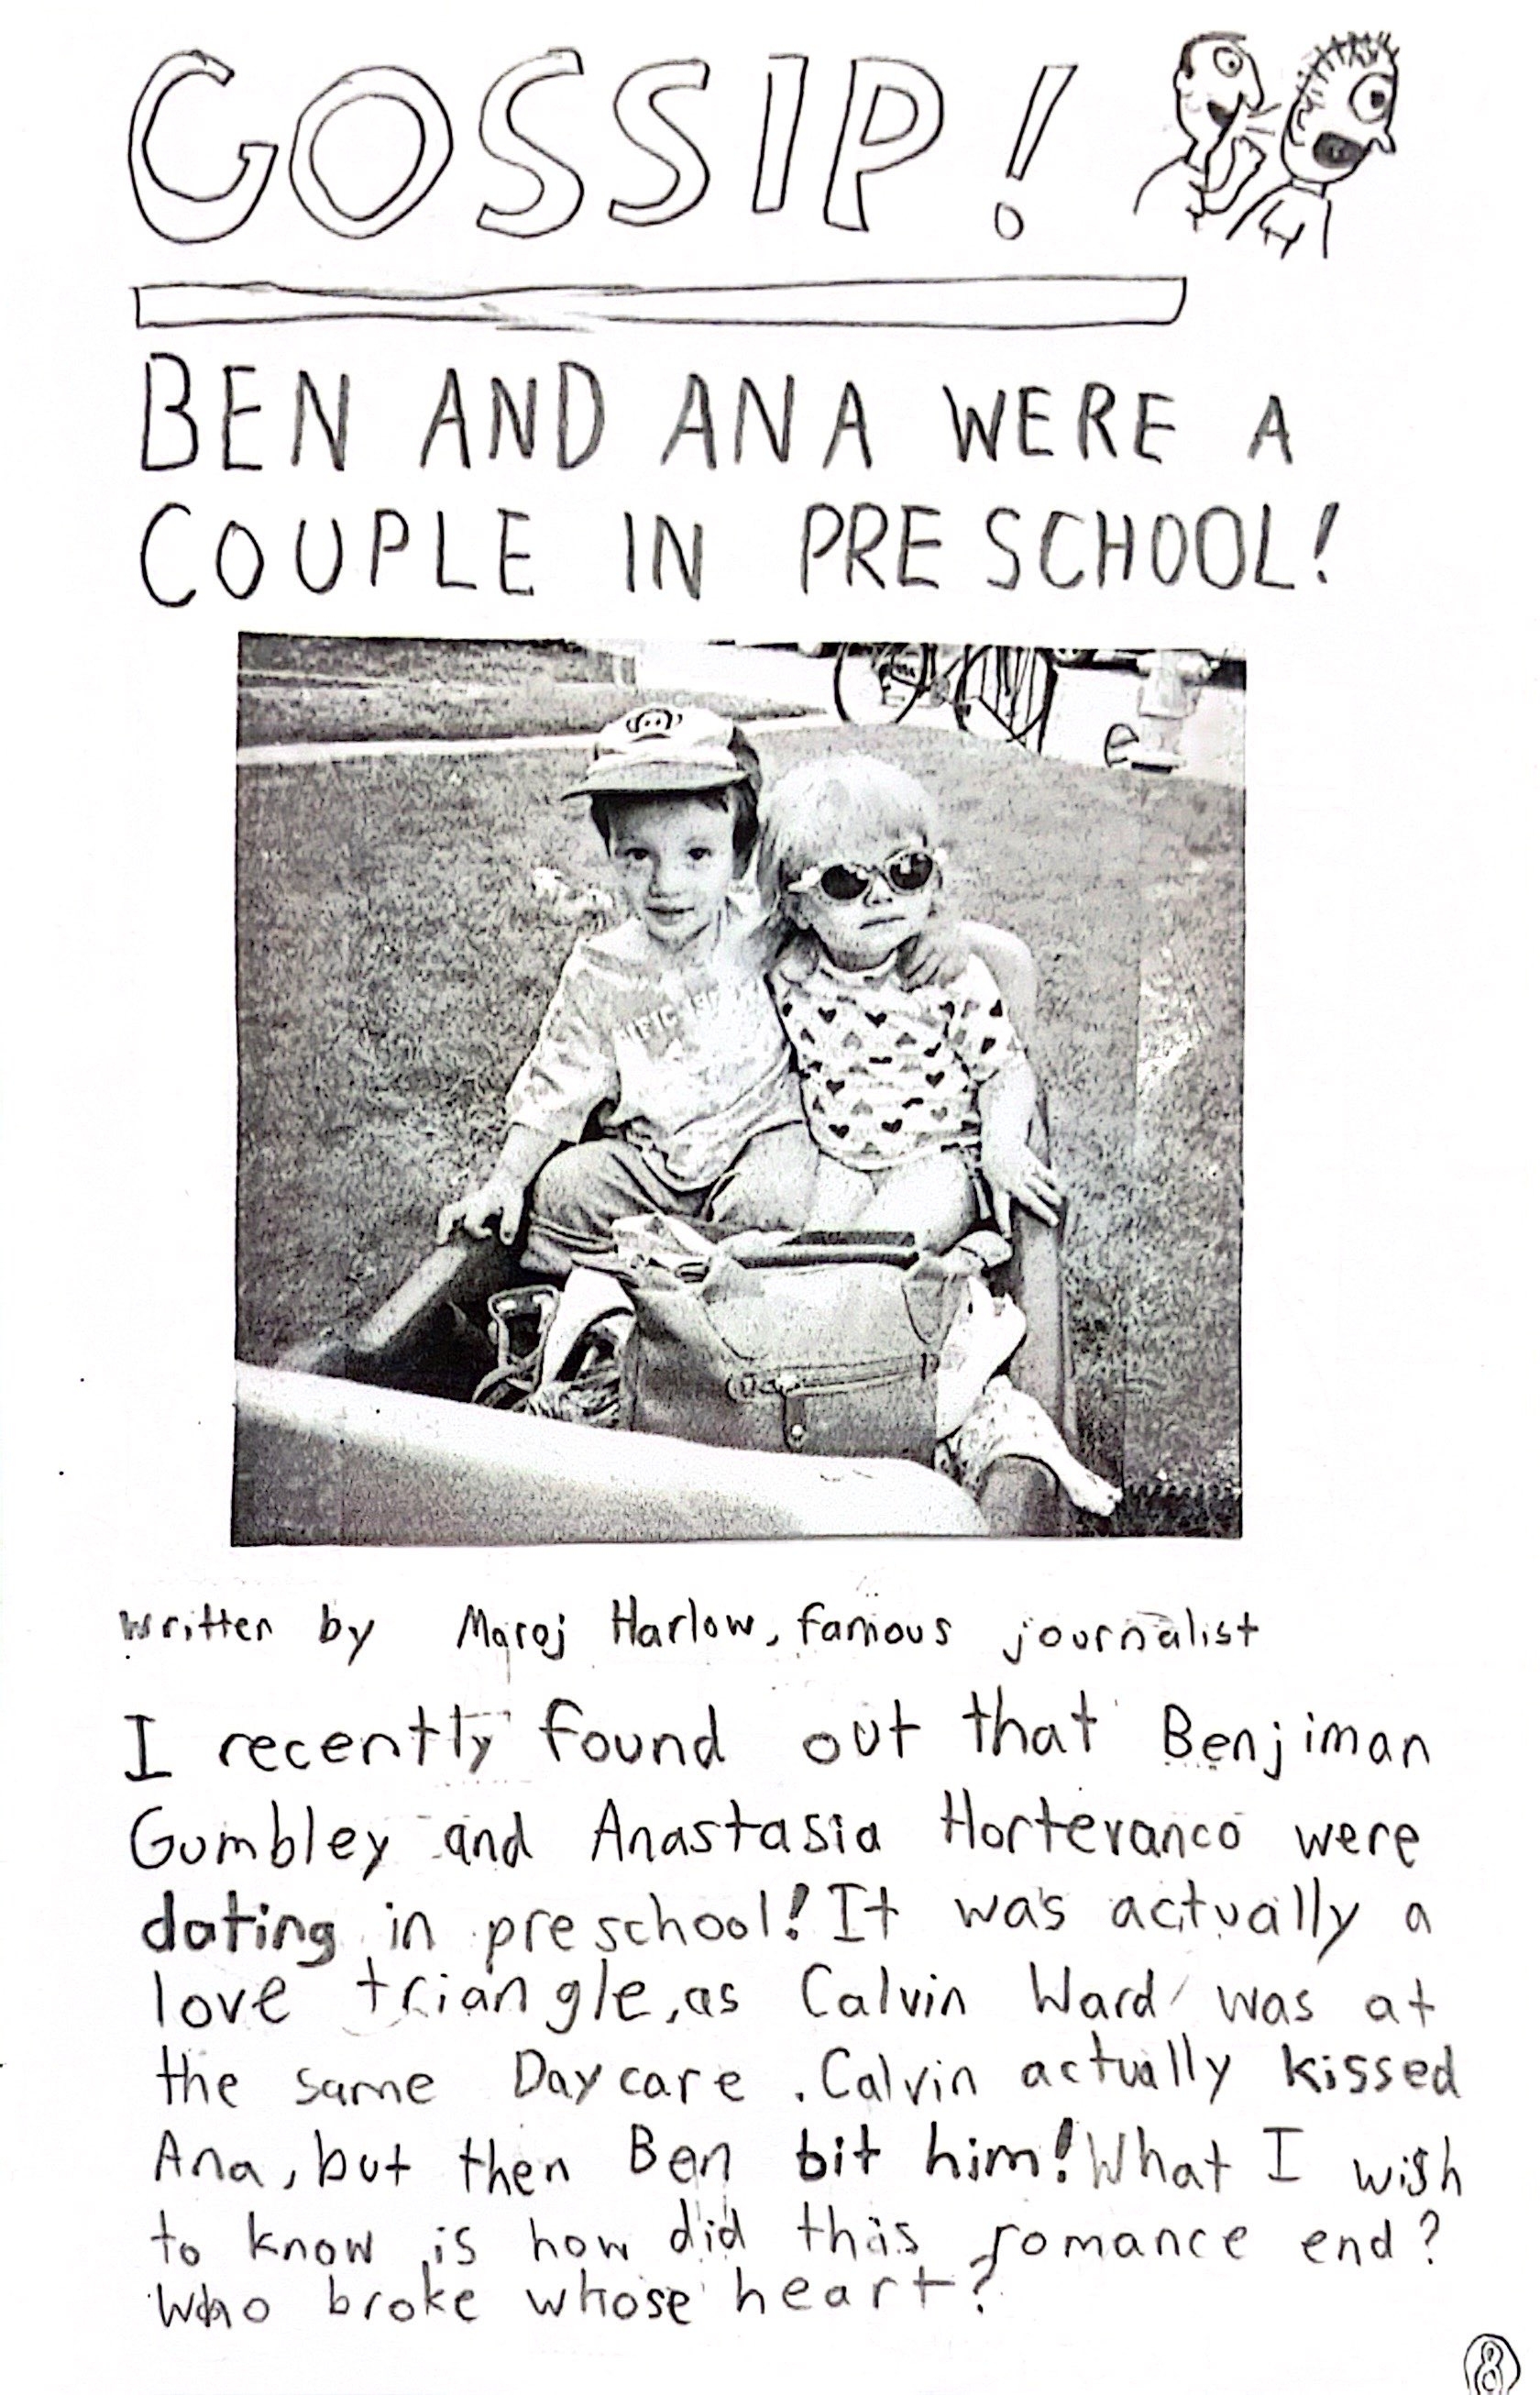 GOSSIP!
BEN AND ANA WERE A
COUPLE IN PRESCHOOL!
written by Maroj Harlow, famous journalist
I recently found out that Benjiman
Gumbley and Anastasia Horteranco were
dating in preschool! It was actually a
love triangle, as Calvin Ward was at
the same Daycare. Calvin actually kissed
Ana, but then Ben bit him! What I wish
to know is how did this romance end?
Who broke whose heart?
8